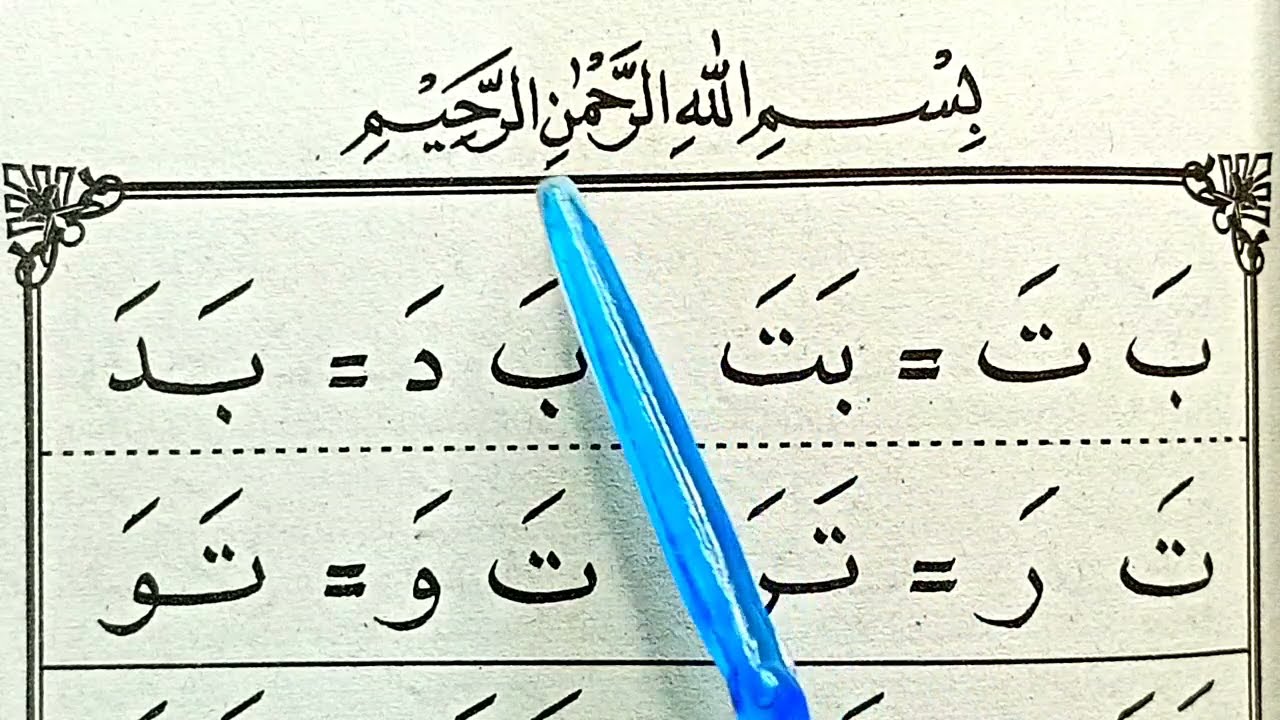 بِسْمِ اللّٰهِ الرَّحْمٰنِ الرَّحِيْمِ
بَ تَ = بَتَ بَ دَ = بَدَ
تَ رَ = تَرَ تَ وَ = تَوَ